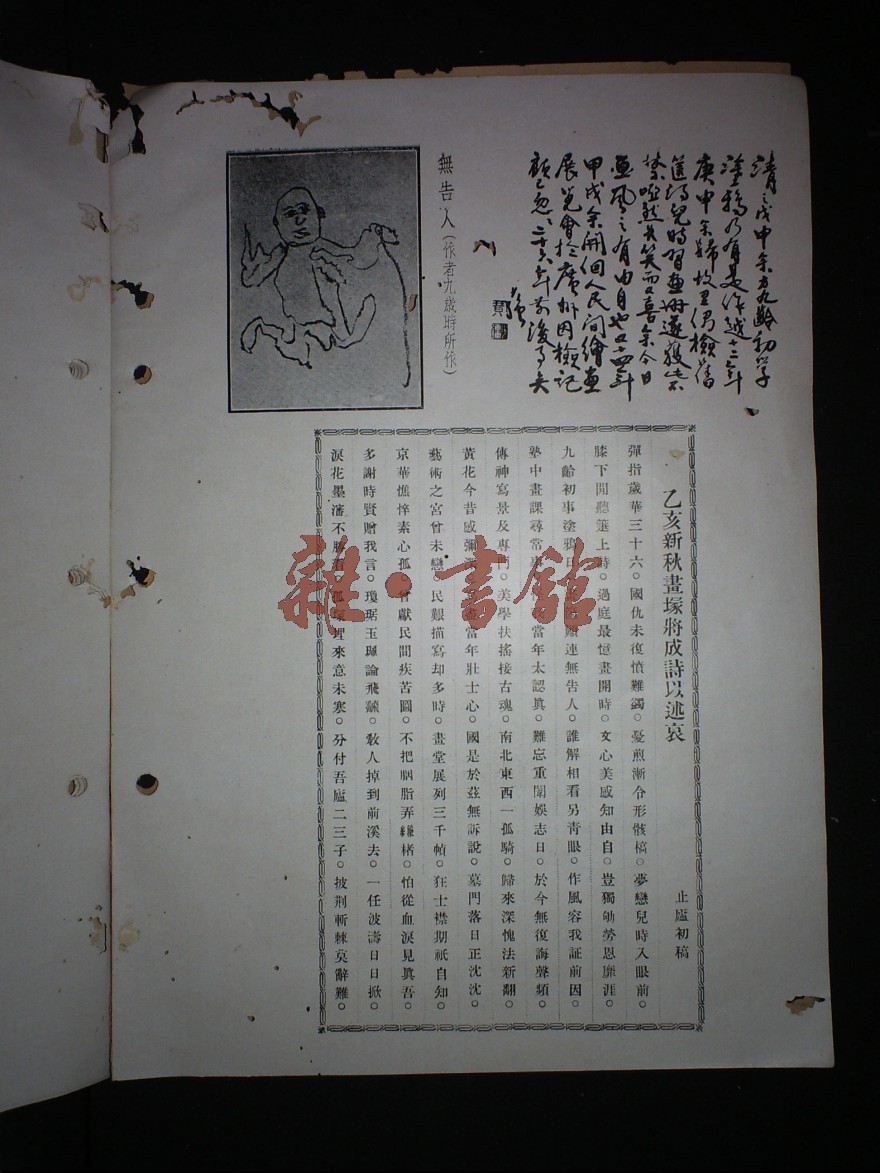 清之戊申余方九齡初學
塗鴉乃有是作越十二年
庚申余歸故里偶檢舊
篋得兒時習畫冊遂獲此不
禁啞然失笑而又喜余今日
畫風之有由自也又十四年
甲戌余開個人民間繪畫
展覽會於廣州因檢記
忽二十六年前後事矣
黃
無告人(作者九歲時所作)
乙亥新秋畫塚將成詩以述哀
止廬初稿
彈指歲華三十六。國仇未復憤難蠲。憂煎漸令形骸槁。夢戀兒時入眼前。
膝下閒聽箑上詩。過庭最憶畫開時。文心美感知由自。豈獨劬勞恩靡涯。
九齡初事塗鴉日。連無告人。誰解相看另靑眼。作風容我証前因。
塾中畫課尋常事。當年太認眞。難忘重闈娛志日。於今無復誨聲頻。
傳神寫景及專門。美學扶搖接古魂。南北東西一孤騎。歸來深愧法新翻。
黃花今昔感彌深。當年壯士心。國是於茲無訴說。墓門落日正沈沈。
藝術之宮曾未戀。民艱描寫却多時。畫堂展列三千幀。狂士襟期祇自知。
京華憔悴素心孤。曾獻民間疾苦圖。不把胭脂弄楮。怕從血淚見眞吾。
多謝時賢贈我言。瓊琚玉珮論飛翻。敎人掉到前溪去。一任波濤日日掀。
淚花墨瀋不勝。孤塚裡來意未寒。分付吾廬二三子。披荆斬棘莫辭難。
雜·書館